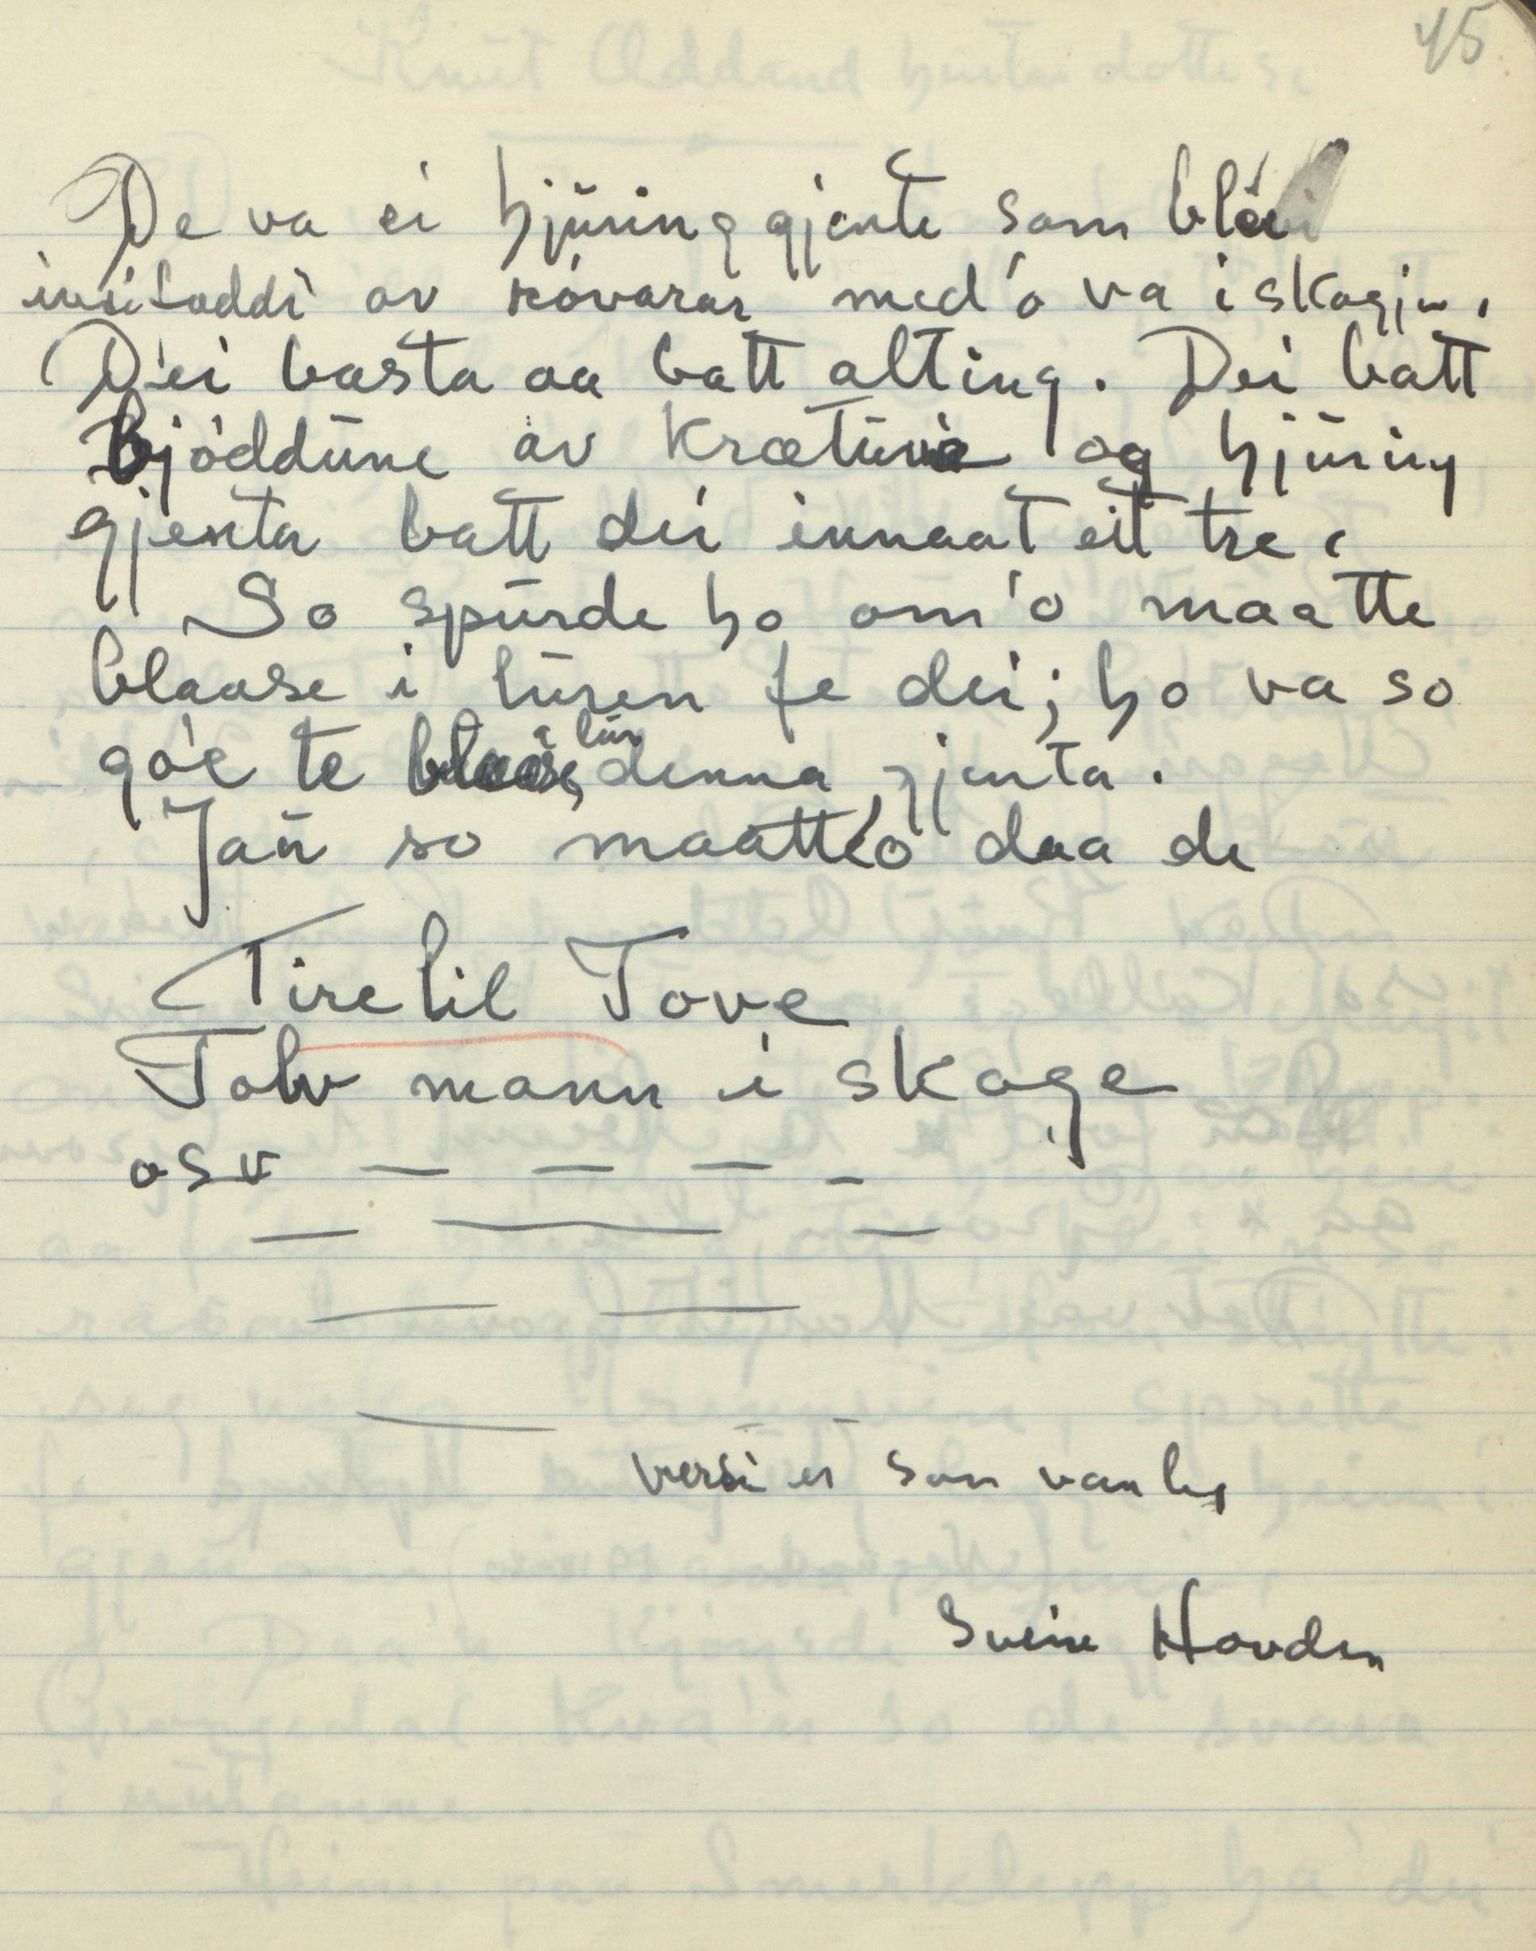 45
De va ei hjuring gjente som blei
innstoddi av róvarar med'o va i skogjen.
Dei basta aa batt alting. Dei batt
bjóddune av krætúre og hjúring
gjenta batt dei innaat eit tre.
So spúrde ho om'o maatte
blaase i lúren fe dei; ho va so
go'e te blaase i lúr, denna gjenta.
Jaú so maatte'o daa de
Tirelil Tove
Tolv mann i skoge
osv — — — –
— — —
— —
—
versi er som vanleg
Svein Hovden